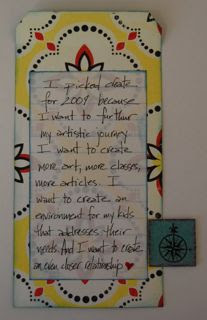 I picked create
for 2009 because
I want to further
my artistic journey.
I want to create
more art, more classes,
more articles. I
want to create an
environment for my kids
that addresses their
needs. And I want to create
an even closer relationship ♥